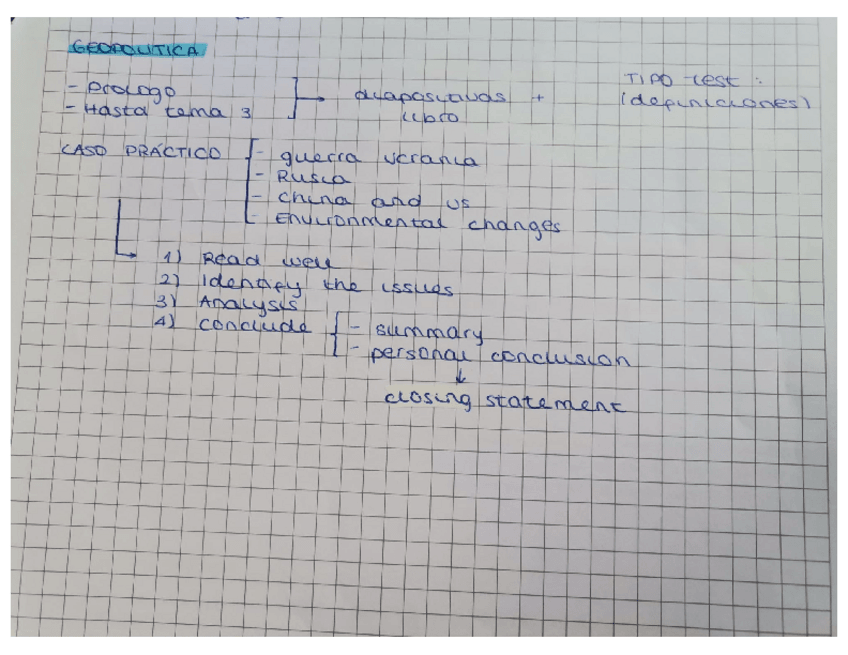 GEOPOLITICA
- Prologo
- Hasta tema 3
diapositivas +
libro
TIPO test :
(definiciones)
CASO PRÁCTICO
- guerra Ucrania
- Rusia
- China and US
- Environmental changes
1) Read well
2) Identify the issues
3) Analysis
4) conclude
- summary
- personal conclusion
closing statement